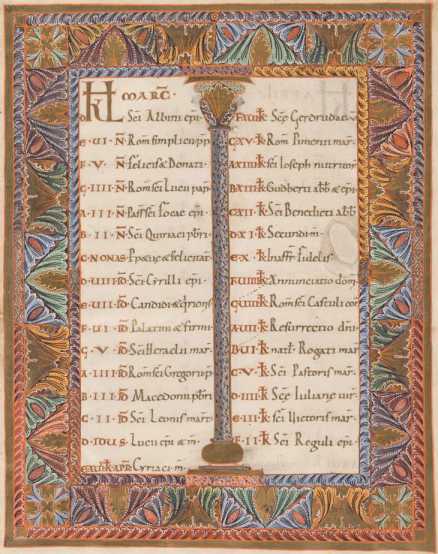 KL MARC.
D Sci Albini epi.
E VI N Rom simplicii pp
F V N felicis & Donati.
G IIII N Rom sci Lucii pap
A III N Pass sci focae epi.
B II N Sci Quiriaci pbri.
C NONAS Ppetue & felicitat
D VIII ID Sci Cyrilli epi.
E VII ID Candidi & qrionis
F VI ID Palatini & firmi.
G V ID Sci Heraclii mar
A IIII ID Rom sci Gregorii pp
B III ID Macedonii pbri
C II ID Sci Leonis mart
D IDUS Lucii epi & m.
KL APR Cyriaci m.
XVI KL Sce Gerdrudae v
G XV KL Rom Pimenii mar.
A XIIII KL sci Ioseph nutritoris
B XIII KL Gudberti abb & epi.
C XII KL Sci Benedicti abb
D XI KL Secundi m.
E X KL fidelis.
VIIII KL Annunciatio dom
G VIII KL Rom sci Castuli
A VII KL Resurrectio dni
B VI KL natl Rogati mar
C V KL Sci Pastoris mar.
D IIII KL Sce Iuliane vir.
E III KL sci Victoris mar.
F II KL Sci Reguli epi.